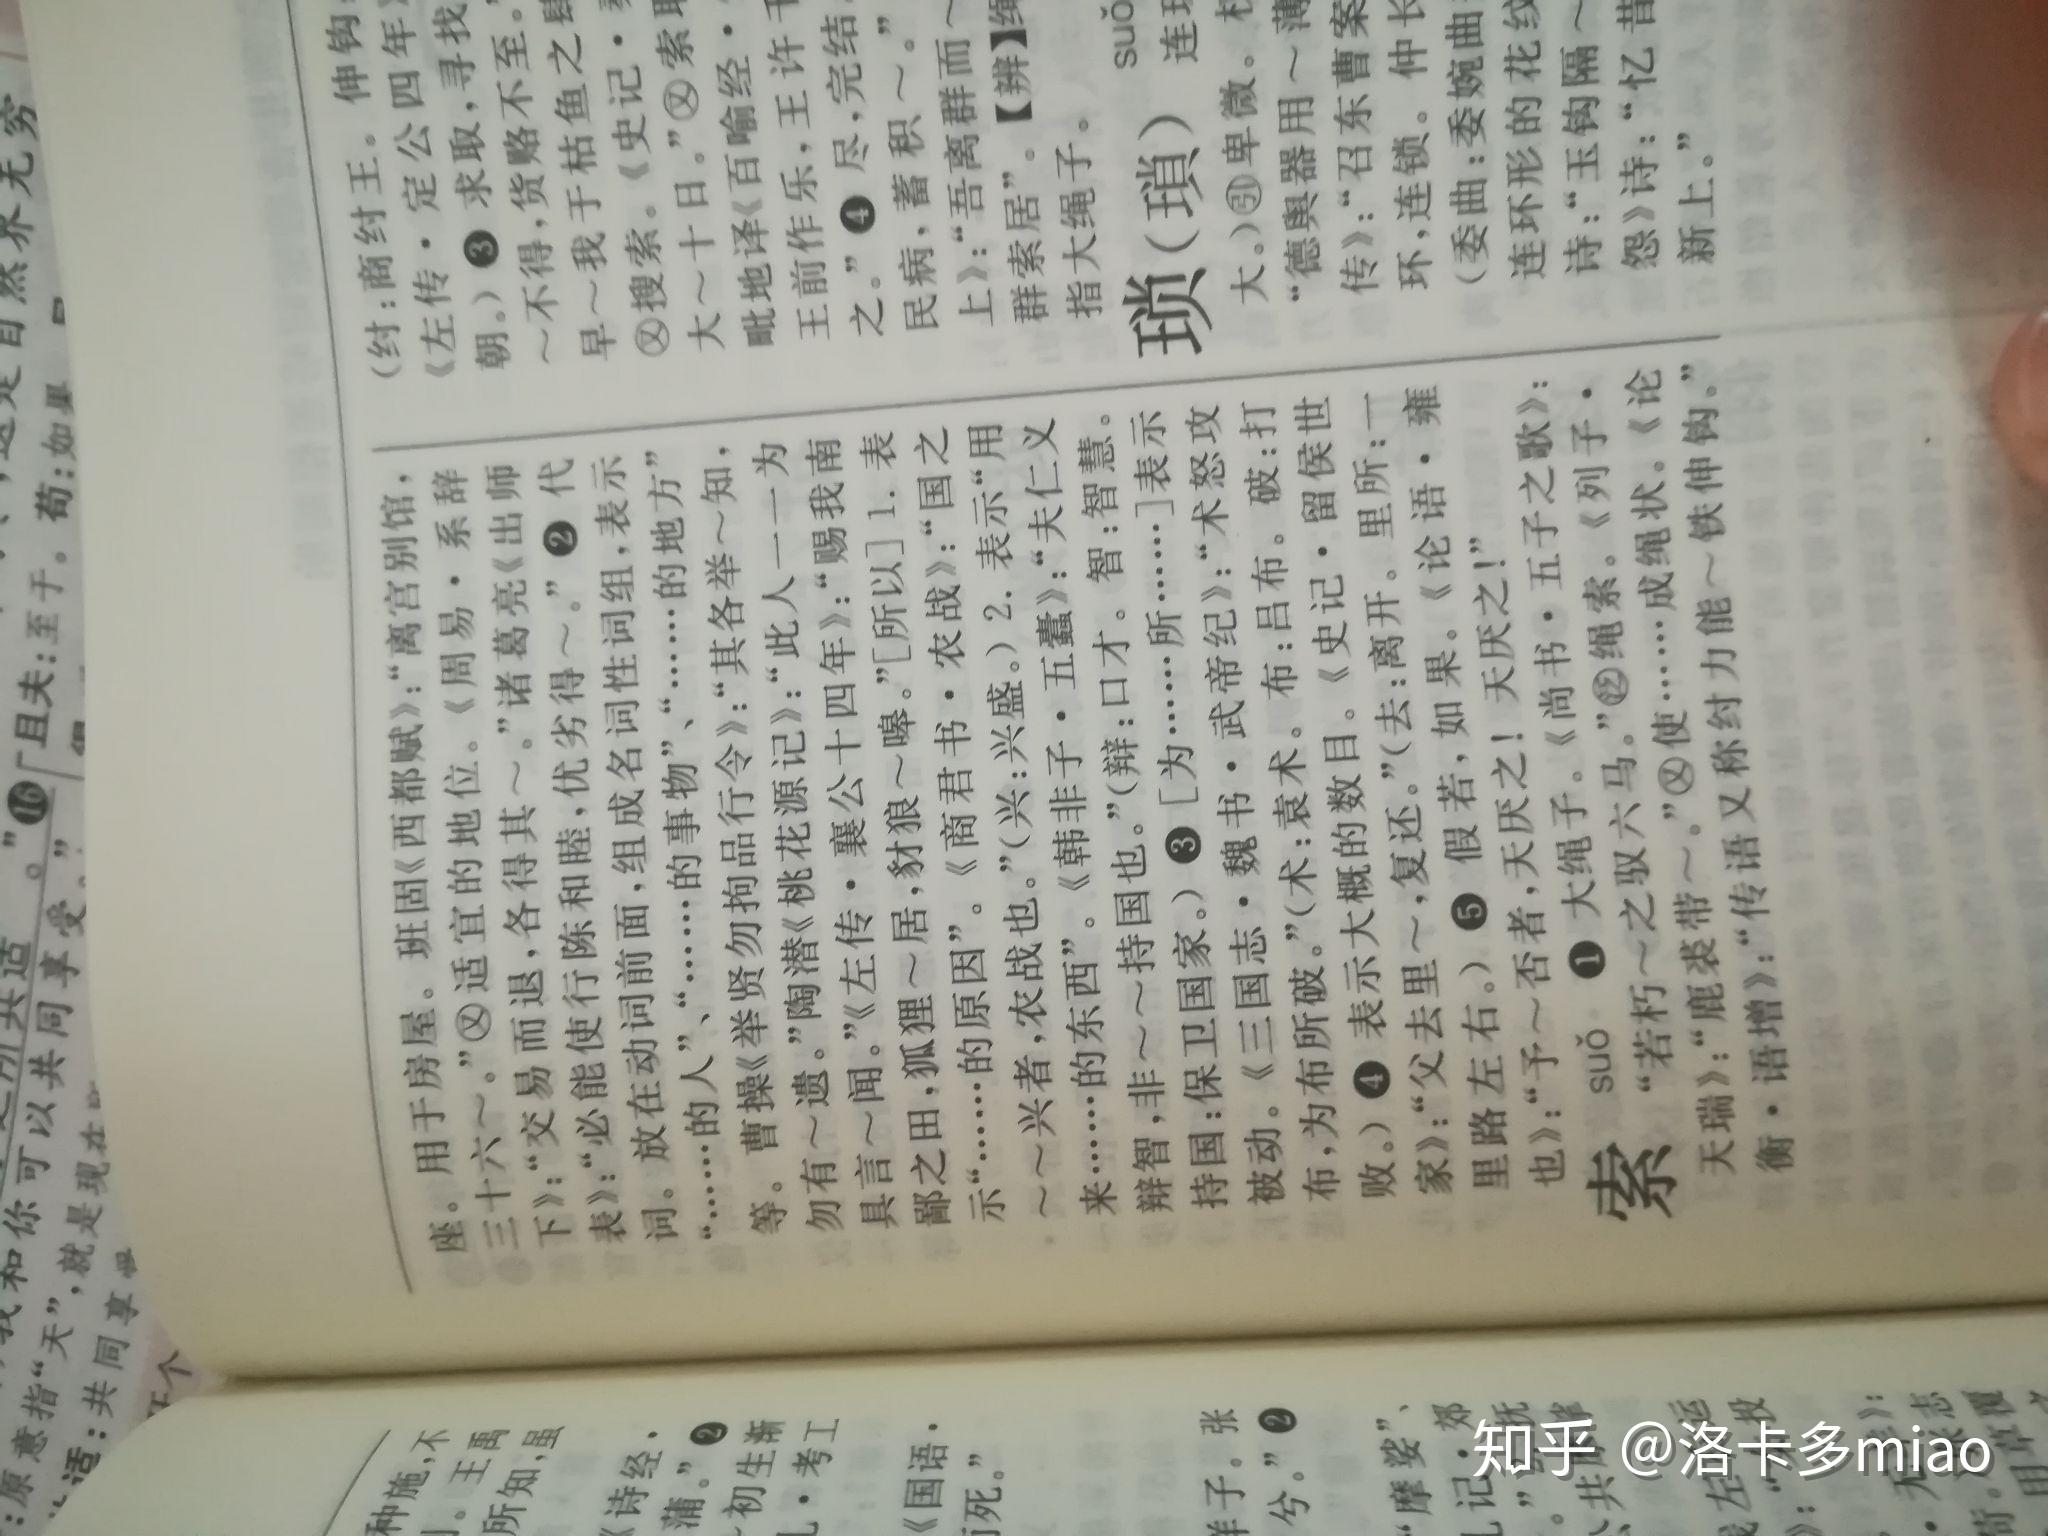 座。用于房屋。班固《西都赋》：“离宫别馆，
三十六～。”㊁适宜的地位。《周易·系辞
下》：“交易而退，各得其～。”诸葛亮《出师
表》：“必能使行陈和睦，优劣得～。”❷代
词。放在动词前面，组成名词性词组，表示
“……的人”、“……的事物”、“……的地方”
等。曹操《举贤勿拘品行令》：“其各举～知，
勿有～遗。”陶潜《桃花源记》：“此人一一为
具言～闻。”《左传·襄公十四年》：“赐我南
鄙之田，狐狸～居，豺狼～嗥。”［所以］1.表
示“……的原因”。《商君书·农战》：“国之
～～兴者，农战也。”（兴：兴盛。）2.表示“用
来……的东西”。《韩非子·五蠹》：“夫仁义
辩智，非～～持国也。”（辩：口才。智：智慧。
持国：保卫国家。）❸［为……所……］表示
被动。《三国志·魏书·武帝纪》：“术怒攻
布，为布所破。”（术：袁术。布：吕布。破：打
败。）❹表示大概的数目。《史记·留侯世
家》：“父去里～，复还。”（去：离开。里所：一
里路左右。）❺假若，如果。《论语·雍
也》：“予～否者，天厌之！天厌之！”
索 suǒ ❶大绳子。《尚书·五子之歌》：
“若朽～之驭六马。”㊕绳索。《列子·
天瑞》：“鹿裘带～。”㊁使……成绳状。《论
衡·语增》：“传语又称纣力能～铁伸钩。”
（纣：商纣王。伸钩：
《左传·定公四年》
朝。）❸求取，寻找
～不得，货赂不至。
早～我于枯鱼之肆
㊁搜索。《史记·
大～十日。”㊁索取
毗地译《百喻经·
王前作乐，王许千
之。”❹尽，完结
民病，蓄积～。”
上》：“吾离群而～
群索居”。【辨】绳
指大绳子。
琐（瑣） suǒ 连环
大。）㊁卑微。
“德舆器用～薄
传》：“召东曹案
环，连锁。仲长
（委曲：委婉曲
连环形的花纹
诗：“玉钩隔～
怨》诗：“忆昔
新上。”
自然界无穷
于。苟：如果
。”⓰「且夫：至于
之所共适
我和你可以共同享受。”
：原意指“天”，就是现在
适：共同享受
种施，不
。王禹
所知，虽
《诗经·
蒲。”❷
初生渐
·考工
《国语·
死。”
子。张
兮。”❷
“摩娑”、
记·郊
知乎 @洛卡多miao